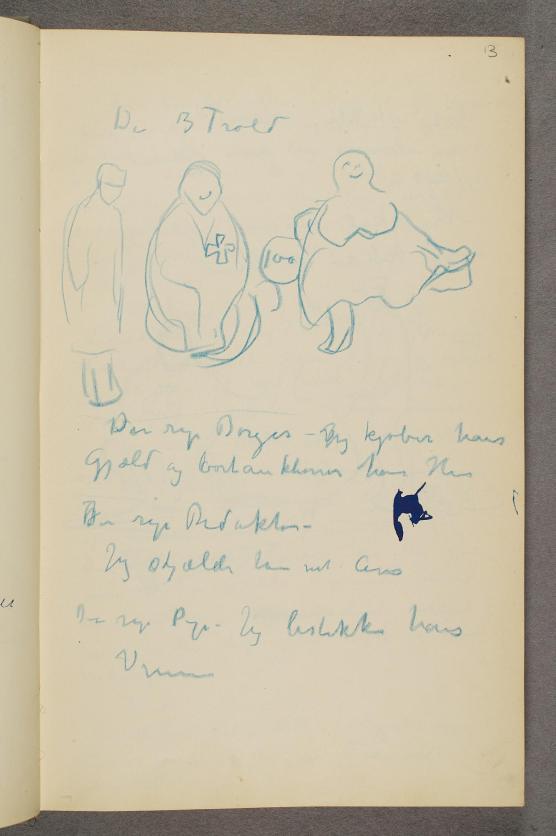 13
De 3 Trold
100
Den rige Borger - Jeg kjøber hans
Gjæld og hans Hus
Den rige Redaktør -
Jeg skjælder ham ud
Den rige Pige - Jeg hans